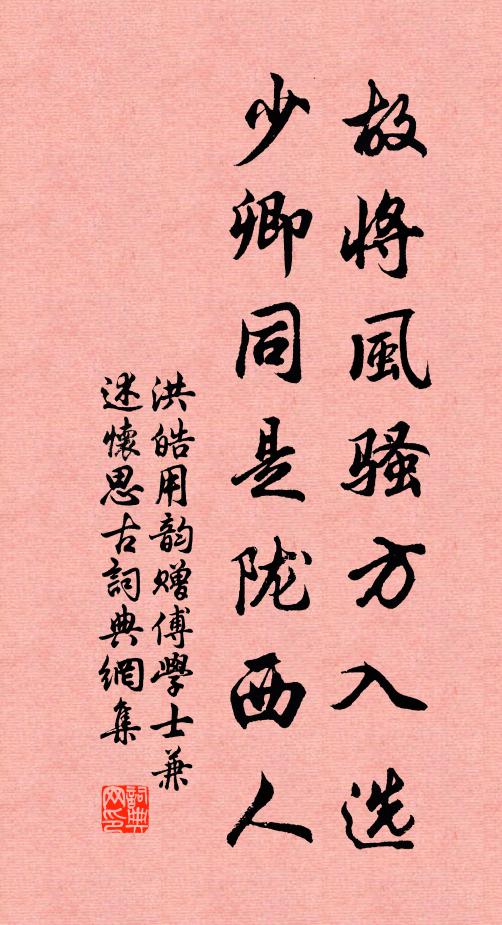 故将風骚方入选
少卿同是陇西人
洪皓用韵赠傅學士兼
述懷思古詞典網集
詞典
网印